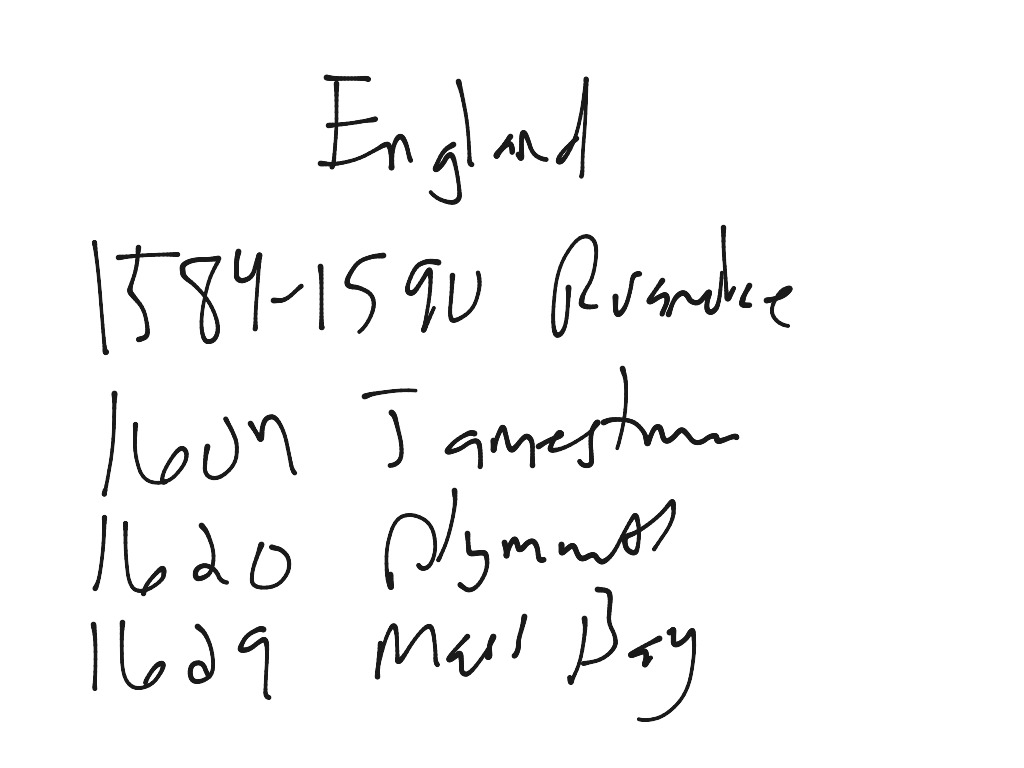 England
1584-1590 Roanoke
1607 Jamestown
1620 Plymouth
1629 Mass Bay